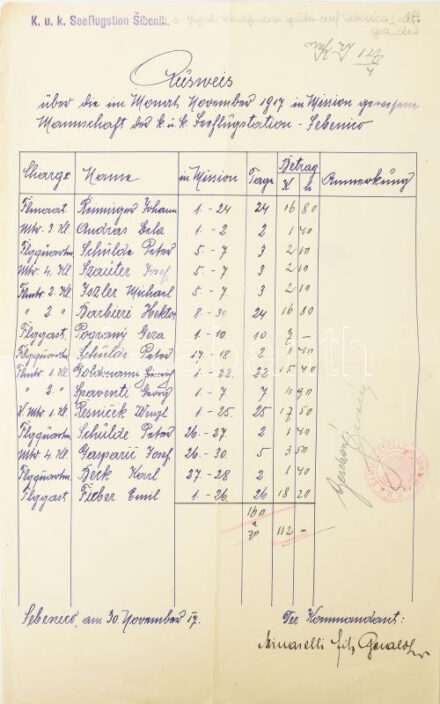 K. u. k. Seeflugstion Šibenik.
Ausweis
über die im Monat November 1917 in Mission gewesene
Mannschaft der k u k Seeflugstation - Sebenico
Charge Name in Mission Tage Betrag Anmerkung
K h
Remniger Johann 1. - 24 24 16 80
Mtr. 3. Kl. András Bela 1. - 2 2 1 40
Flgquartm. Schulde Peter 5. - 7 3 2 10
Mtr. 4. Kl. Szauter Josef 5. - 7. 3 2 10
2. Kl. Iszler Michael 5. - 7. 3 2 10
" 2. " Barbieri Hektor 8. - 30 24 16 80
Flggast. Pográny Geza 1. - 10. 10 7 -
Flgquartm. Schulde Peter 17. - 18. 2 1 40
1. Kl. Goldmann 1. - 22. 22 15 40
2. " Spaventi Georg 1. - 7 7 4 90
1. Kl. Resniček 1. - 25 25 17 50
Flgquartm. Schulde Peter 26. - 27. 2 1 40
Mtr. 4. Kl. Gasparič Josef 26. - 30. 5 3 50
Flgquartm. Beck Karl 27. - 28 2 1 40
Flggast. Fieber Emil 1. - 26. 26 18 20
160
a
70 112 -
Sebenico, am 30 November 17.
Der Kommandant: